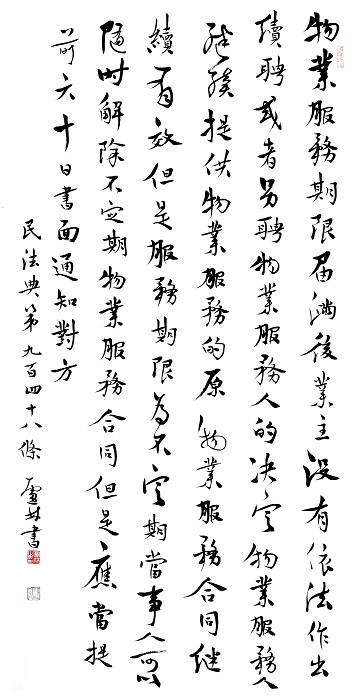 物業服務期限屆滿後業主沒有依法作出
續聘或者另聘物業服務人的決定物業服務人
繼續提供物業服務的原物業服務合同繼
續有效但是服務期限為不定期當事人可以
隨時解除不定期物業服務合同但是應當提
前六十日書面通知對方
民法典第九百四十八條 盧林書